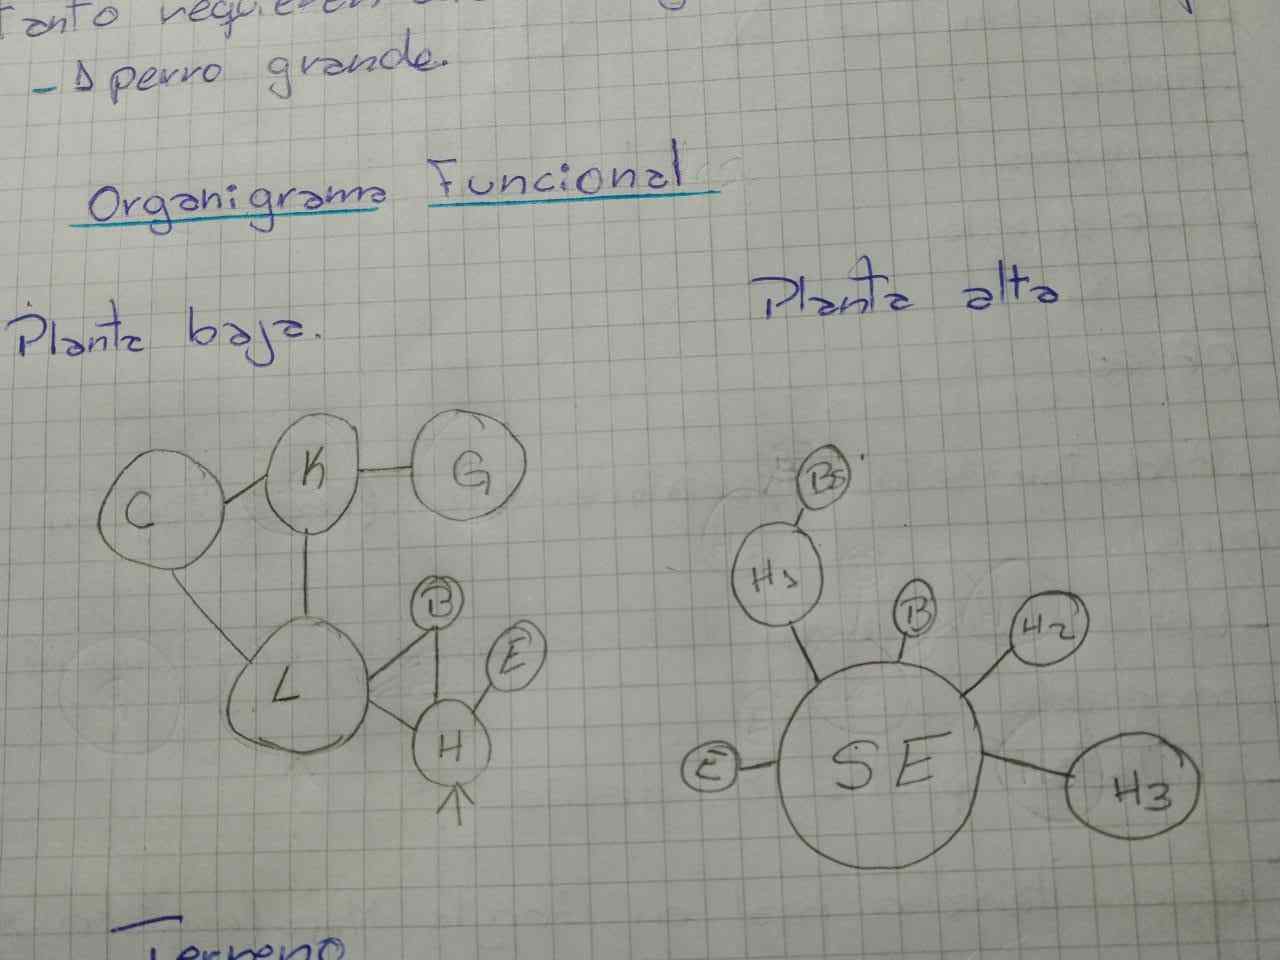 Tanto
- 1 perro grande.
Organigrama Funcional
Planta baja.
Planta alta
C
K
G
L
B
E
H
Bs
H1
B
H2
E
SE
H3
Terreno